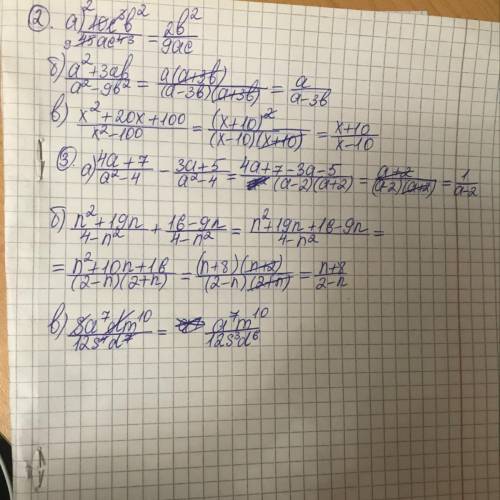 2. а) 10c³b² / 45ac⁴ = 2b² / 9ac
б) a²+3ab / a²-9b² = a(a+3b) / (a-3b)(a+3b) = a / a-3b
в) x²+20x+100 / x²-100 = (x+10)² / (x-10)(x+10) = x+10 / x-10
3. а) 4a+7 / a²-4 - 3a+5 / a²-4 = 4a+7-3a-5 / (a-2)(a+2) = a+2 / (a-2)(a+2) = 1 / a-2
б) n²+19n / 4-n² + 16-9n / 4-n² = n²+19n+16-9n / 4-n² =
= n²+10n+16 / (2-n)(2+n) = (n+8)(n+2) / (2-n)(2+n) = n+8 / 2-n
в) a⁷dm¹⁰ / d⁷ = a⁷m¹⁰ / d⁶